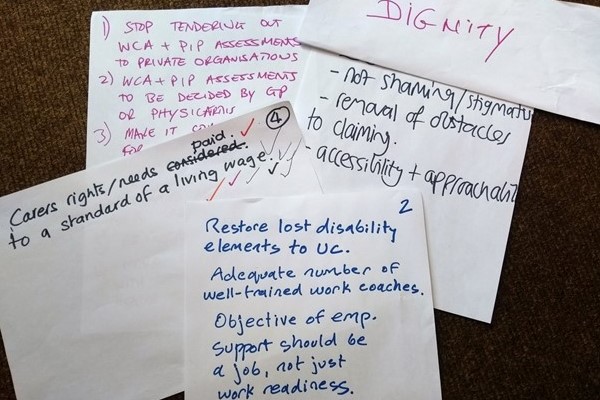 1) STOP TENDERING OUT
WCA + PIP ASSESSMENTS
TO PRIVATE ORGANISATIONS
2) WCA + PIP ASSESSMENTS
TO BE DECIDED BY GP
OR
3) MAKE IT
FOR
DIGNITY
- not shaming/stigmati
- removal of obstacles
to claiming.
- accessibility + approachabil
4
paid.
Carers rights/needs considered.
to a standard of a living wage.
2
Restore lost disability
elements to UC.
Adequate number of
well-trained work coaches.
Objective of emp.
support should be
a job, not just
work readiness.